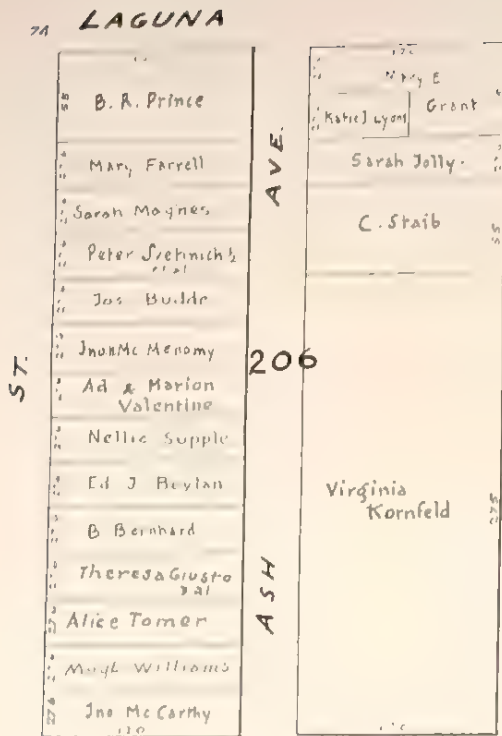 LAGUNA
B. R. Prince
Mary Farrell
Sarah Magnes
Peter
et al
Jos Budde
Jno McMenomy
Ad & Marion
Valentine
Nellie Supple
Ed J Boylan
B Bernhard
Theresa Giusto
et al
Alice Tomer
Williams
Jno McCarthy
27 6
120
ST.
AVE.
206
ASH
Mary E
Grant
Katie J Lyons
Sarah Jolly
C. Staib
55
Virginia
Kornfeld
275
120